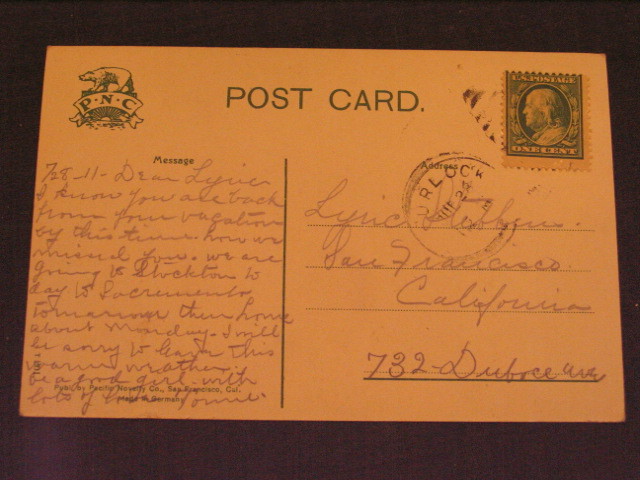 P·N·C
POST CARD.
U.S. POSTAGE
ONE CENT
Message
Address
7/28-11- Dear Lyric
I know you are back
from your vacation
by this time. how we
missed you. we are
going to Stockton to
day to Sacremento
tomarrow then home
about monday. I will
be sorry to leave this
warm weather.
be a good girl. with
lots of love
Publ. by Pacific Novelty Co., San Francisco, Cal.
Made in Germany
URLOCK
Lyric
San Francisco
California
732- Duboce ave